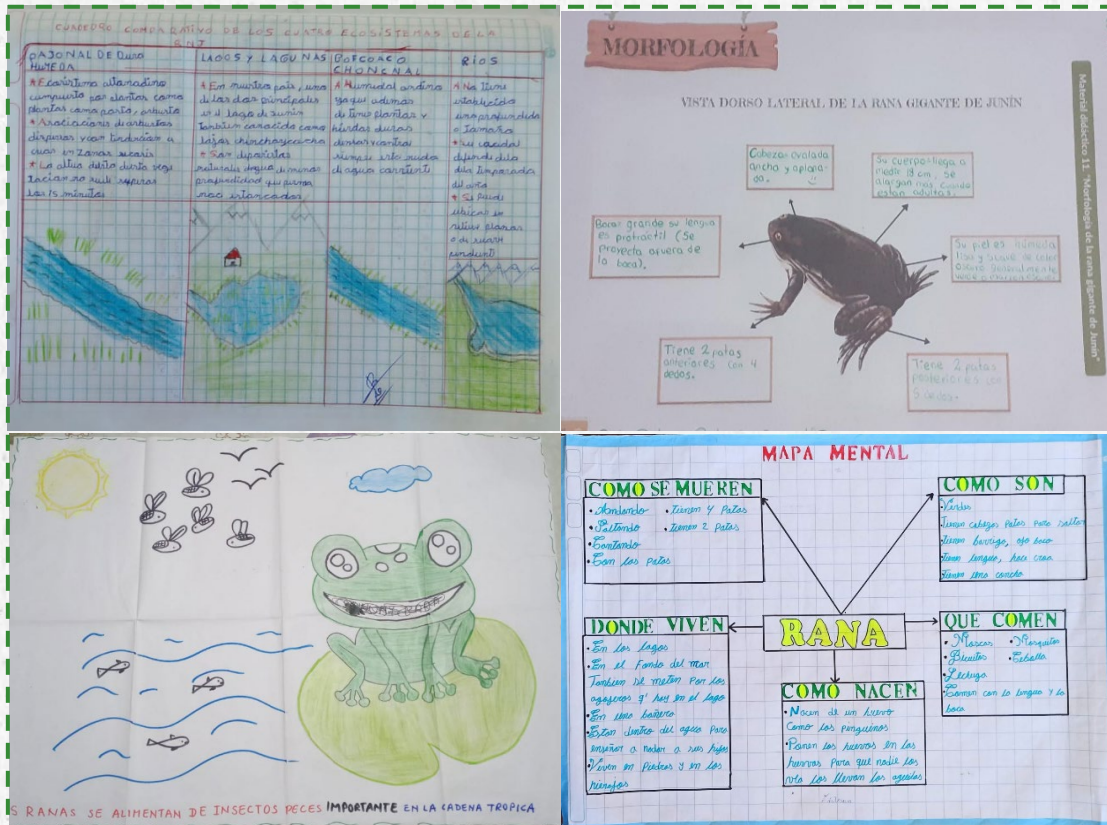 CUADRO COMPARATIVO DE LOS CUATRO ECOSISTEMAS DE LA
RNJ
PAJONAL DE Puna
HUMEDA
* Ecosistema altoandino
compuesto por plantas como
plantas como pasto, arbusto
* Asociaciones de arbustos
dispersas y con tendencia a
en zonas
* La
Los 15 minutos
LAGOS Y LAGUNAS
* En nuestro país, uno
de los dos principales
es el lago de Junín
también conocido como
lago chinchaycocha
* Son depósitos
naturales de agua de menos
profundidad
estancadas
BOFEDAL O
* Humedal andino
ya que además
de tiene plantas y
hierbas duras
siempre esta
de agua corriente
RIOS
* No tiene
establecido
una profundidad
o Tamaño
* Su caudal
depende de la
la temporada
del año
* Se puede
ubicar en
planas
o de
MORFOLOGÍA
VISTA DORSO LATERAL DE LA RANA GIGANTE DE JUNÍN
Cabeza ovalada
ancha y aplana-
da.
Su cuerpo llega a
medir 18 cm, se
alargan mas cuando
estan adultas.
Boca grande su lengua
es protractil (Se
proyecta afuera de
la boca).
Su piel es húmeda
lisa y suave de color
oscuro generalmente
Tiene 2 patas
anteriores con 4
dedos.
Tiene 2 patas
posteriores con
5 dedos.
Material didáctico 11. "Morfología de la rana gigante de Junín"
S RANAS SE ALIMENTAN DE INSECTOS PECES IMPORTANTE EN LA CADENA TROPICA
MAPA MENTAL
COMO SE MUEREN
• Andando • tienen 4 Patas
• Saltando • tienen 2 Patas
• Cantando
• Con las patas
COMO SON
• Verdes
tienen cabeza patas para saltar
tienen barriga, ojo boca
tienen lengua, hace croa
tienen una concha
RANA
DONDE VIVEN
• En los lagos
• En el Fondo del mar
Tambien se meten por los
agujeros q' hay en el lago
• En una bañera
• Estan dentro del agua para
enseñar a nadar a sus hijos
• Viven en Piedras y en los
QUE COMEN
• Moscas • Mosquitos
• Bichitos • Cebolla
• Lechuga
• Comen con la lengua y la
boca
COMO NACEN
• Nacen de un huevo
Como los pinguinos
• Ponen los huevos en las
hierbas Para que nadie los
vea los llevan las aguilas